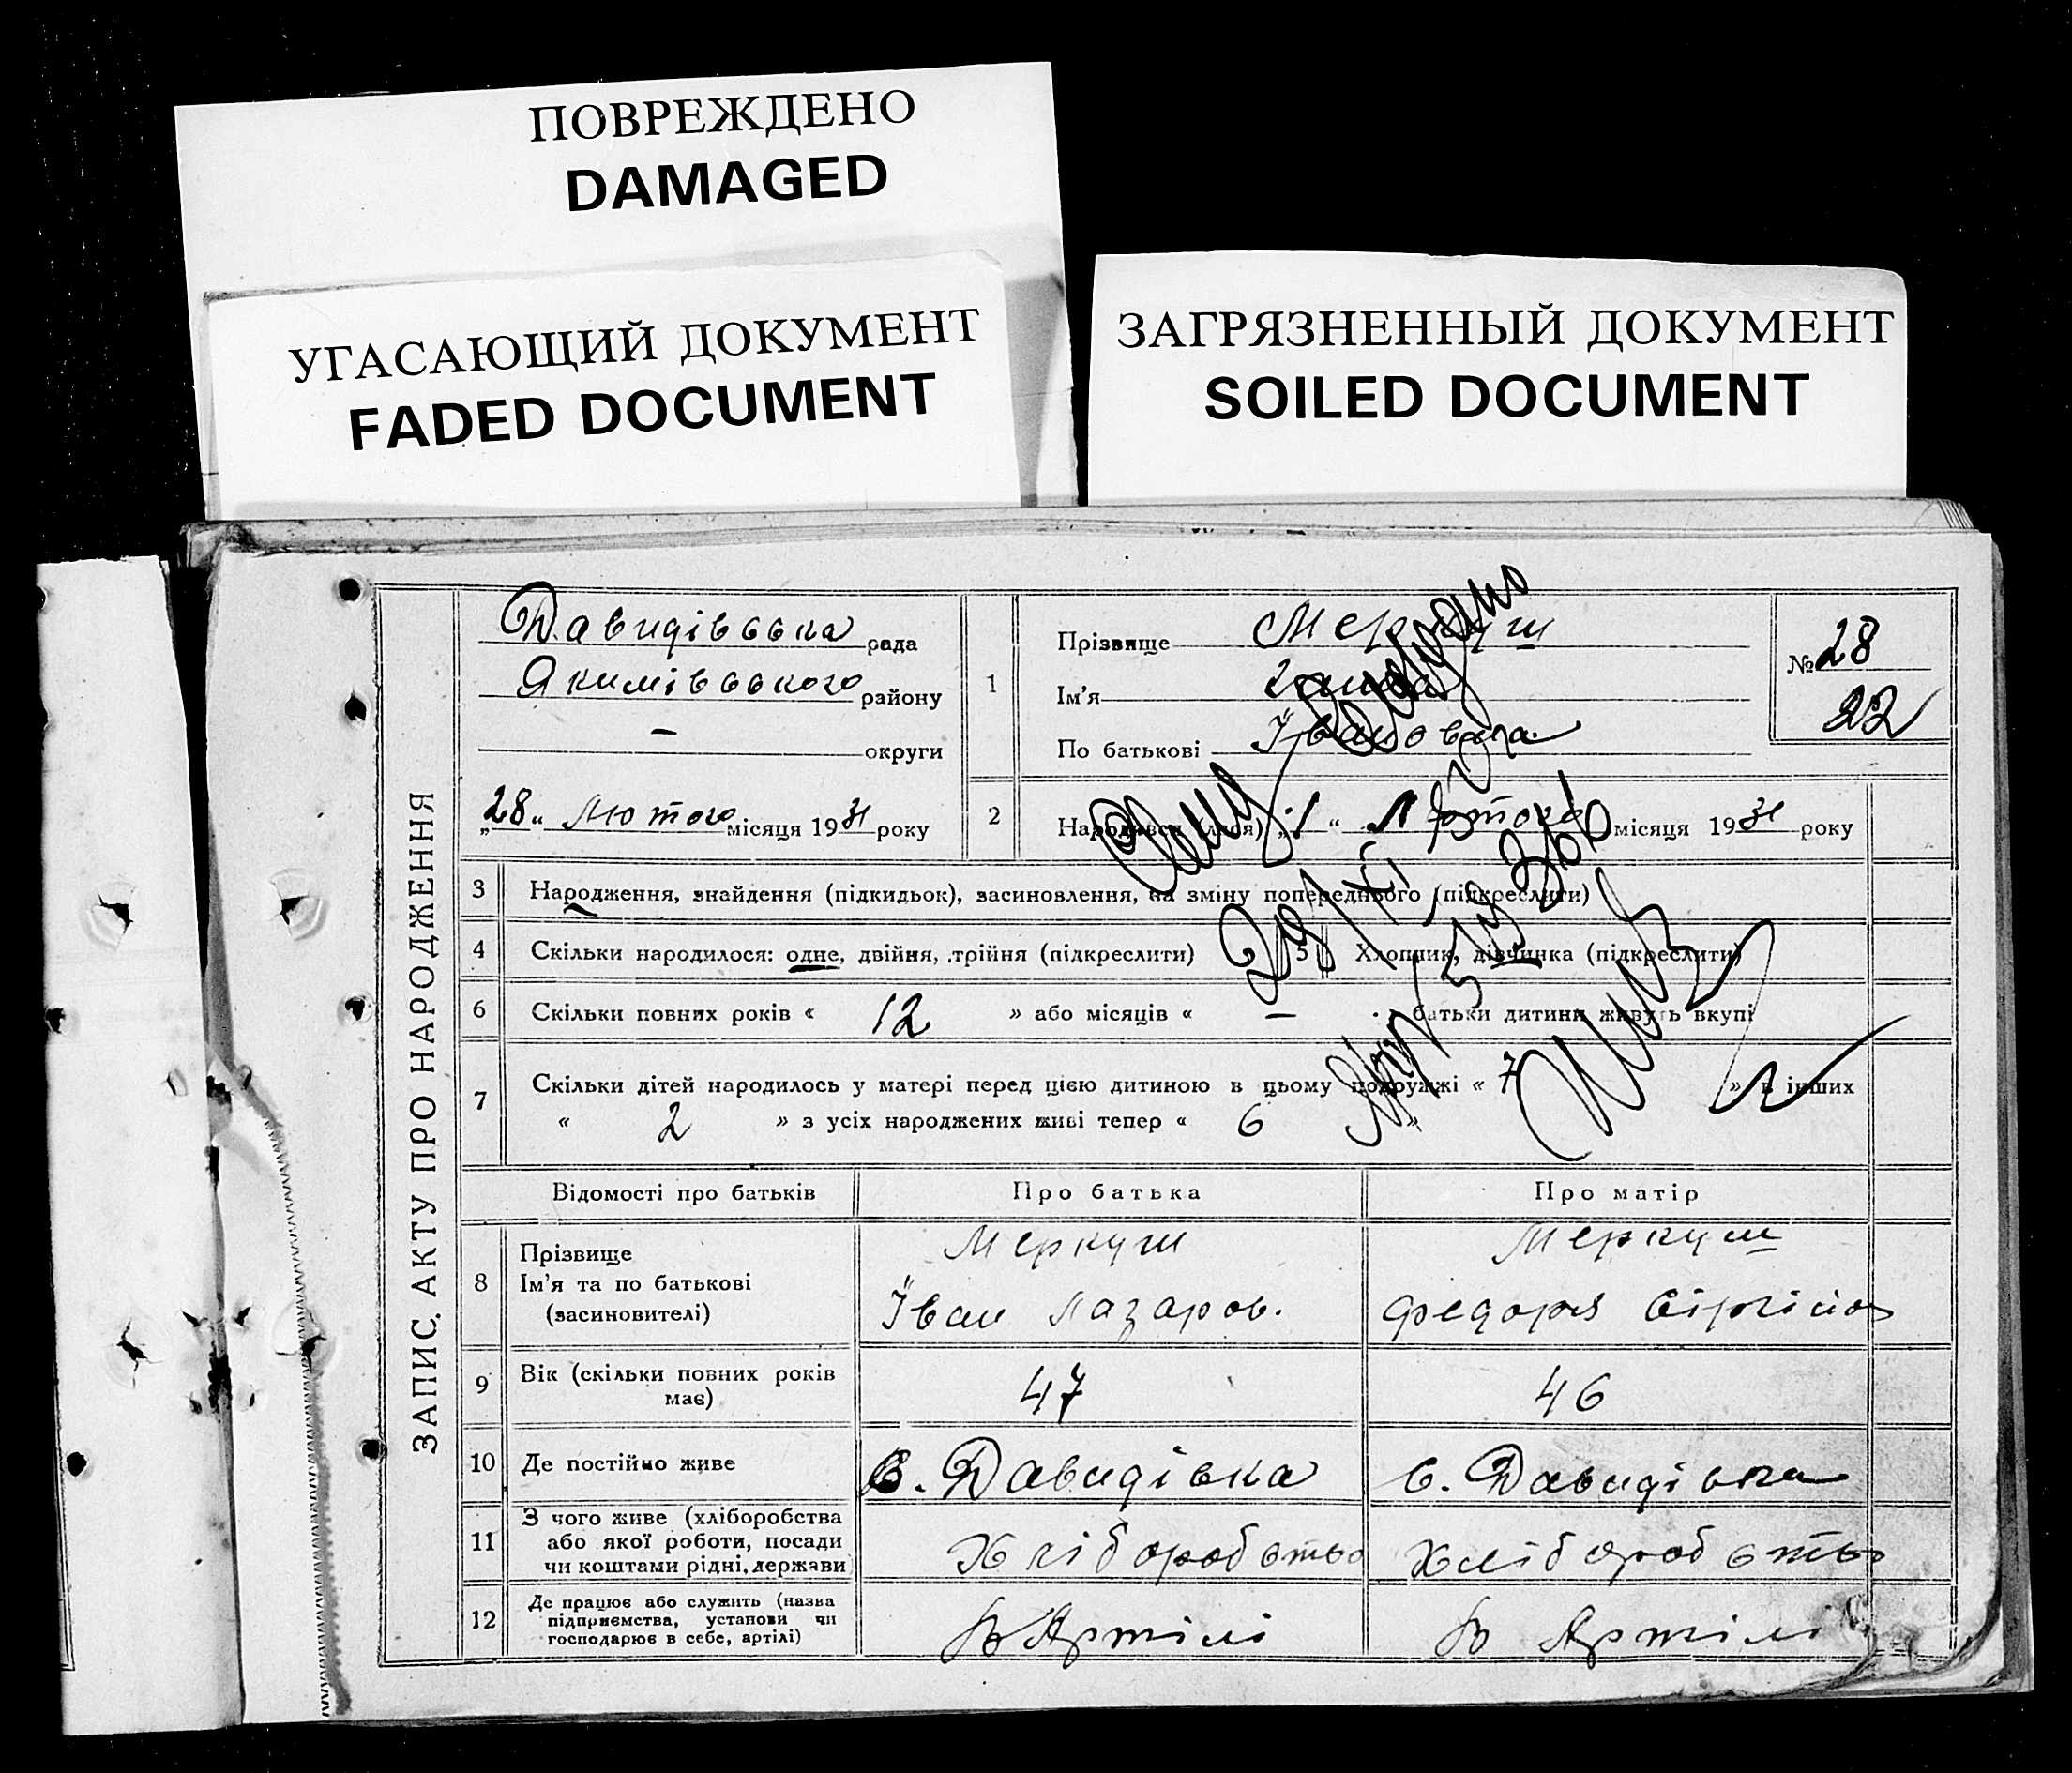 ПОВРЕЖДЕНО
DAMAGED
УГАСАЮЩИЙ ДОКУМЕНТ
FADED DOCUMENT
ЗАГРЯЗНЕННЫЙ ДОКУМЕНТ
SOILED DOCUMENT
ЗАПИС. АКТУ ПРО НАРОДЖЕННЯ
Давидівська рада
Якимівського району
— округи
„28“ Лютого місяця 1931 року
1
Прізвище Меркуш
Ім'я
По батькові Івановна
№ 28
22
2
Народився (лася) „1“ Лютого місяця 1931 року
3 Народження, знайдення (підкидьок), засиновлення, на зміну попереднього (підкреслити)
4 Скільки народилося: одне, двійня, трійня (підкреслити) 5 Хлопчик, дівчинка (підкреслити)
6 Скільки повних років « 12 » або місяців « — батьки дитини живуть вкупі
7 Скільки дітей народилось у матері перед цією дитиною в цьому подружжі « 7 » в інших
« 2 » з усіх народжених живі тепер « 6 »
29/XI
Відомості про батьків Про батька Про матір
8 Прізвище
Ім'я та по батькові
(засиновителі)
Меркуш
Іван Лазаров.
Меркуш
Федора
9 Вік (скільки повних років має) 47 46
10 Де постійно живе С. Давидівка С. Давидівка
11 З чого живе (хліборобства
або якої роботи, посади
чи коштами рідні, держави)
Хліборобство Хліборобство
12 Де працює або служить (назва
підприємства, установи чи
господарює в себе, артілі)
В Артілі В Артілі